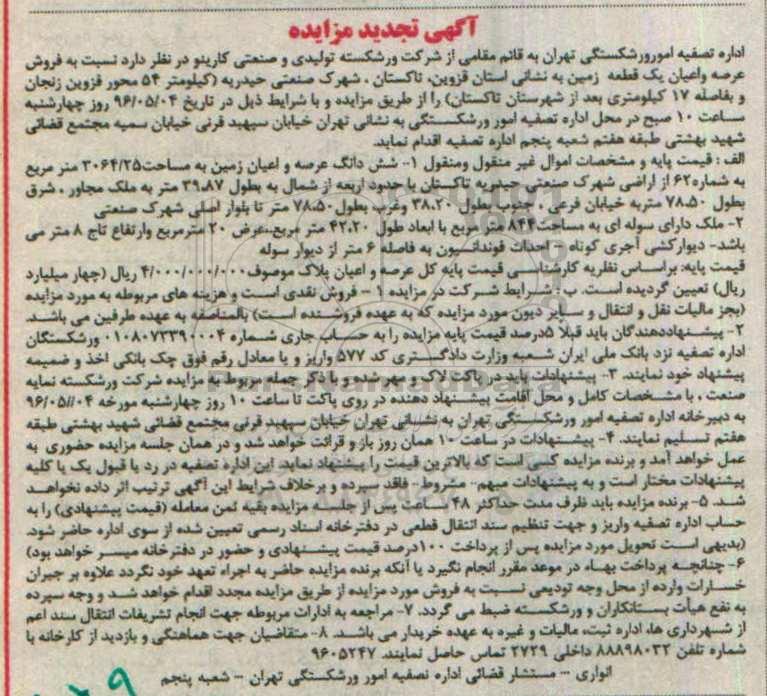 آگهی تجدید مزایده
اداره تصفیه امورورشکستگی تهران به قائم مقامی از شرکت ورشکسته تولیدی و صنعتی کارینو در نظر دارد نسبت به فروش
عرصه واعیان یک قطعه زمین به نشانی استان قزوین، تاکستان ، شهرک صنعتی حیدریه (کیلومتر ۵۴ محور قزوین زنجان
و بفاصله ۱۷ کیلومتری بعد از شهرستان تاکستان) را از طریق مزایده و با شرایط ذیل در تاریخ ۹۶/۰۵/۰۴ روز چهارشنبه
ساعت ۱۰ صبح در محل اداره تصفیه امور ورشکستگی به نشانی تهران خیابان سپهبد قرنی خیابان سمیه مجتمع قضائی
شهید بهشتی طبقه هفتم شعبه پنجم اداره تصفیه اقدام نماید.
الف : قیمت پایه و مشخصات اموال غیر منقول ومنقول ۱- شش دانگ عرصه و اعیان زمین به مساحت۳۰۶۴/۲۵ متر مربع
به شماره۶۲ از اراضی شهرک صنعتی حیدریه تاکستان با حدود اربعه از شمال به بطول ۳۹،۸۷ متر به ملک مجاور ، شرق
بطول ۷۸،۵۰ متربه خیابان فرعی ، جنوب بطول ۳۸،۲۰ وغرب بطول ۷۸،۵۰ متر تا بلوار اصلی شهرک صنعتی
۲- ملک دارای سوله ای به مساحت۸۴۴ متر مربع با ابعاد طول ۴۲،۲۰ متر مربع،عرض ۲۰ مترمربع وارتفاع تاج ۸ متر می
باشد- دیوارکشی آجری کوتاه – احداث فوندانسیون به فاصله ۶ متر از دیوار سوله
قیمت پایه: براساس نظریه کارشناسی قیمت پایه کل عرصه و اعیان پلاک موصوف۴/۰۰۰/۰۰۰/۰۰۰ ریال (چهار میلیارد
ریال) تعیین گردیده است. ب : شرایط شرکت در مزایده ۱ – فروش نقدی است و هزینه های مربوطه به مورد مزایده
(بجز مالیات نقل و انتقال و سایر دیون مورد مزایده که به عهده فروشنده است) بالمناصفه به عهده طرفین می باشد.
۲- پیشنهاددهندگان باید قبلا ۵درصد قیمت پایه مزایده را به حساب جاری شماره ۰۱۰۸۰۷۳۳۹۰۰۰۴ ورشکستگان
اداره تصفیه نزد بانک ملی ایران شعبه وزارت دادگستری کد ۵۷۷ واریز و یا معادل رقم فوق چک بانکی اخذ و ضمیمه
پیشنهاد خود نمایند. ۳- پیشنهادات باید در پاکت لاک و مهر شده و با ذکر جمله مربوط به مزایده شرکت ورشکسته نمایه
صنعت ، با مشخصات کامل و محل اقامت پیشنهاد دهنده در روی پاکت تا ساعت ۱۰ روز چهارشنبه مورخه ۹۶/۰۵//۰۴
به دبیرخانه اداره تصفیه امور ورشکستگی تهران به نشانی تهران خیابان سپهبد قرنی مجتمع قضائی شهید بهشتی طبقه
هفتم تسلیم نمایند. ۴- پیشنهادات در ساعت ۱۰ همان روز باز و قرائت خواهد شد و در همان جلسه مزایده حضوری به
عمل خواهد آمد و برنده مزایده کسی است که بالاترین قیمت را پیشنهاد نماید. این اداره تصفیه در رد یا قبول یک یا کلیه
پیشنهادات مختار است و به پیشنهادات مبهم– مشروط- فاقد سپرده و برخلاف شرایط این آگهی ترتیب اثر داده نخواهد
شد. ۵- برنده مزایده باید ظرف مدت حداکثر ۴۸ ساعت پس از جلسه مزایده بقیه ثمن معامله (قیمت پیشنهادی) را به
حساب اداره تصفیه واریز و جهت تنظیم سند انتقال قطعی در دفترخانه اسناد رسمی تعیین شده از سوی اداره حاضر شود.
(بدیهی است تحویل مورد مزایده پس از پرداخت ۱۰۰درصد قیمت پیشنهادی و حضور در دفترخانه میسر خواهد بود)
۶- چنانچه پرداخت بهاء در موعد مقرر انجام نگیرد یا آنکه برنده مزایده حاضر به اجراء تعهد خود نگردد علاوه بر جبران
خسارات وارده از محل وجه تودیعی نسبت به فروش مورد مزایده از طریق مزایده مجدد اقدام خواهد شد و وجه سپرده
به نفع هیأت بستانکاران و ورشکسته ضبط می گردد. ۷- مراجعه به ادارات مربوطه جهت انجام تشریفات انتقال سند اعم
از شهرداری ها، اداره ثبت، مالیات و غیره به عهده خریدار می باشد. ۸- متقاضیان جهت هماهنگی و بازدید از کارخانه با
شماره تلفن ۸۸۸۹۸۰۳۲ داخلی ۲۷۲۹ تماس حاصل نمایند. ۹۶۰۵۲۴۷
انواری – مستشار قضائی اداره تصفیه امور ورشکستگی تهران – شعبه پنجم